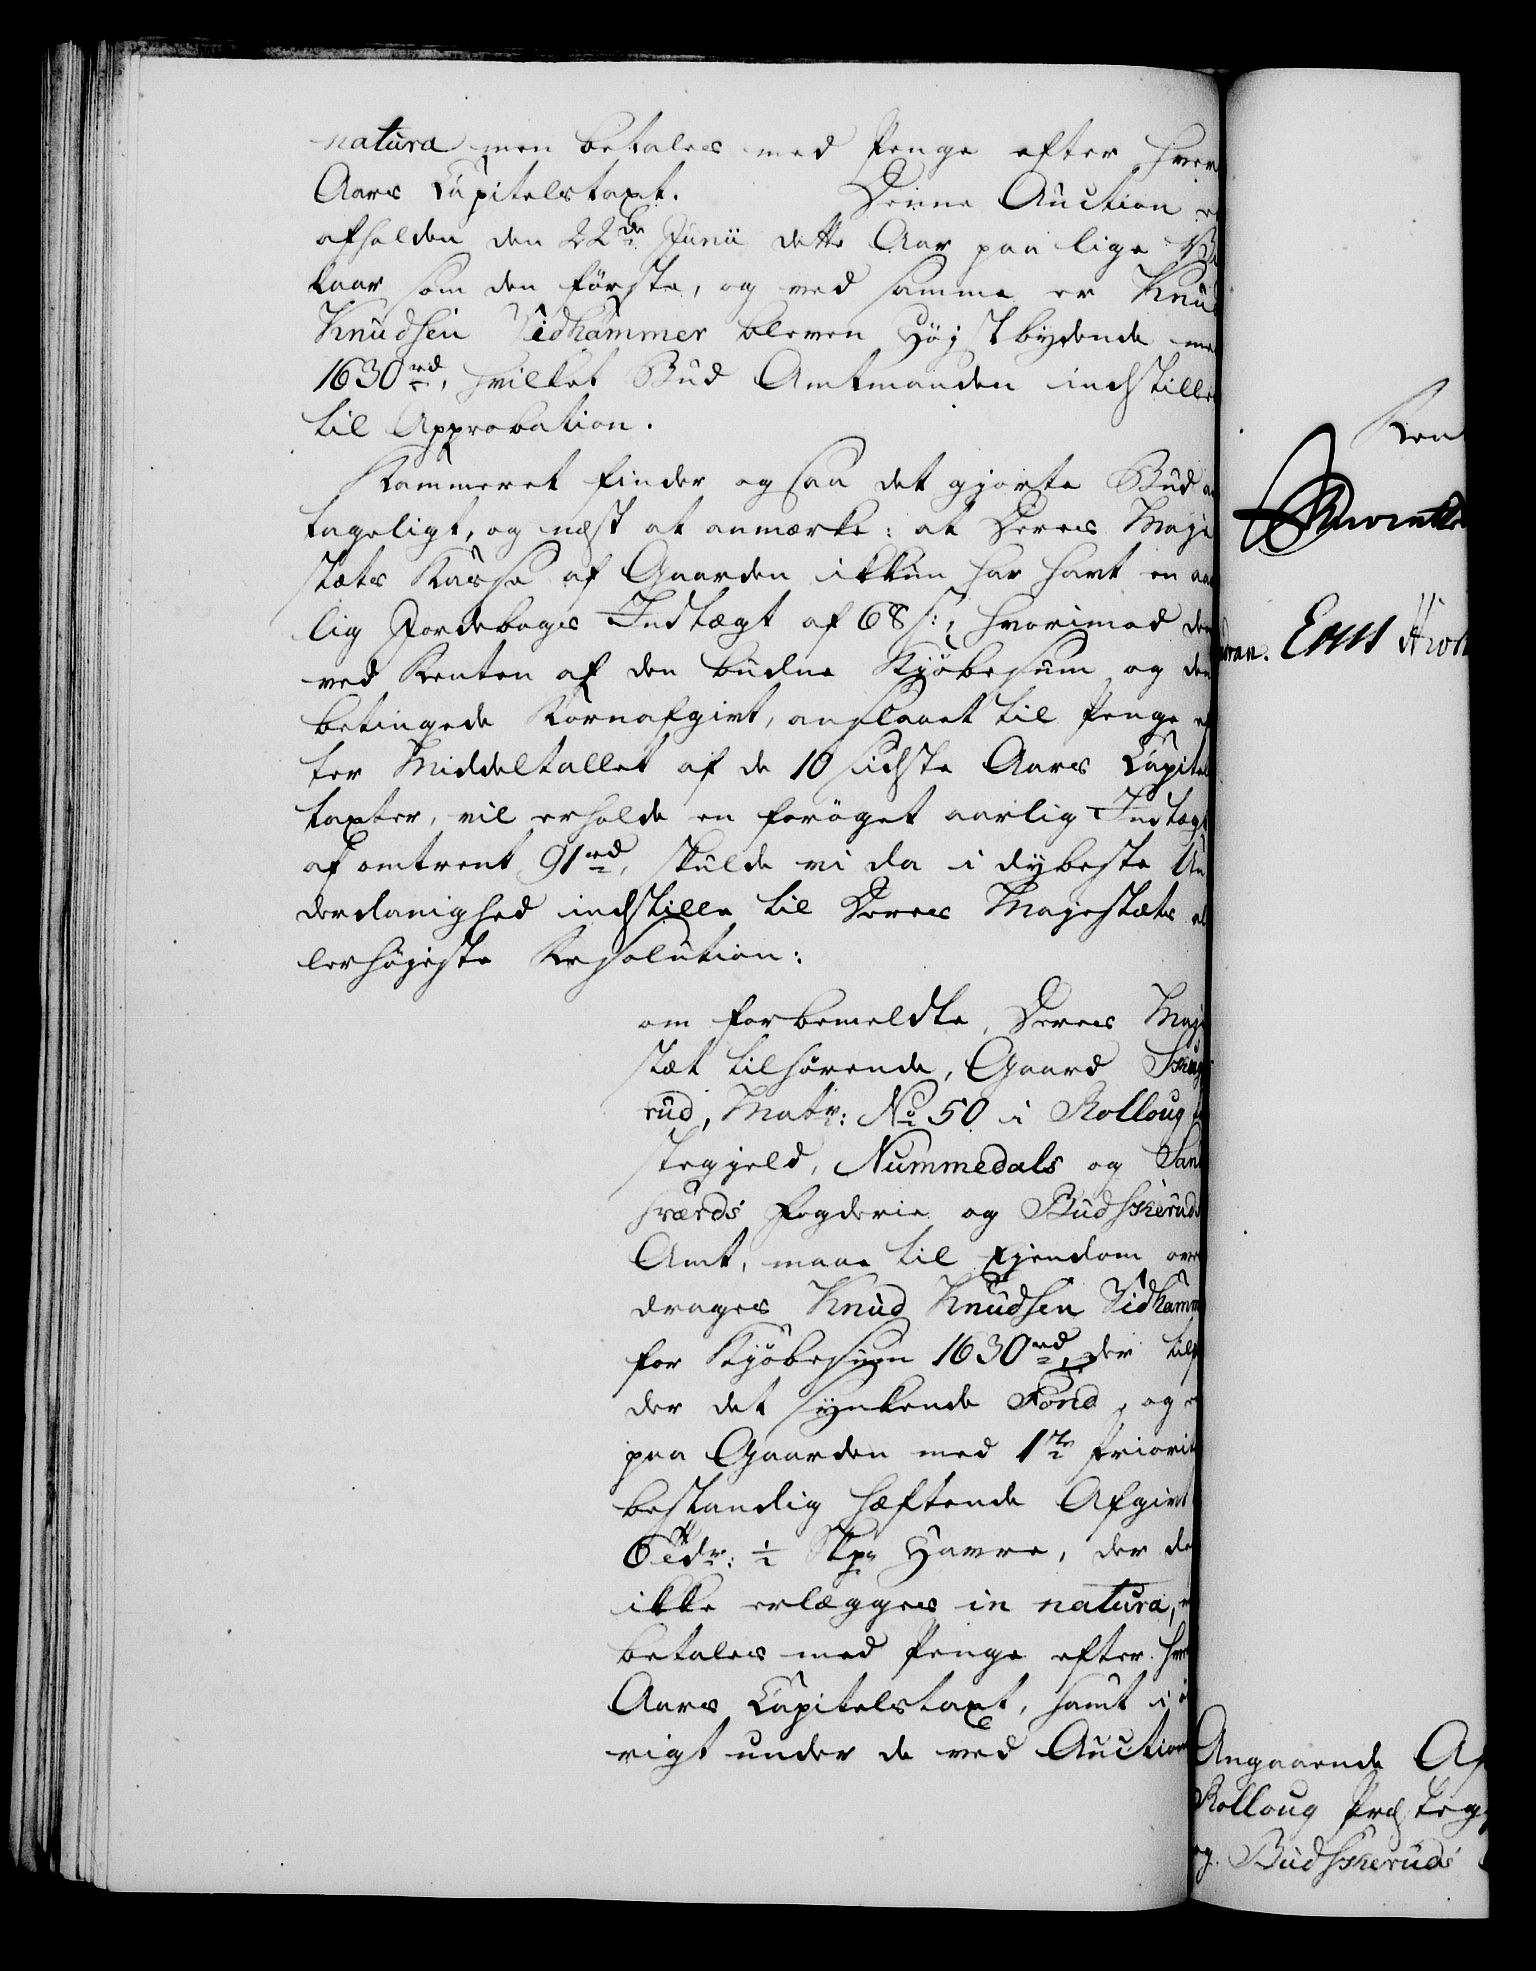 natura men betales med Penge efter hver
Aars Capitelstaxt. Denne Auction e
afholden den 22de Junii dette Aar paa lige Vil
kaar som den første, og ved samme er Knud
Knudsen Vidhammer bleven Høistbydende med
1630 rd, hvilket Bud Amtmanden indstiller
til Approbation.
Kammeret finder ogsaa det gjorte Bud an
tageligt, og næst at anmærke: at Deres Maje
stæts Kasse af Gaarden ikkun har havt en aar
lig Jordebogs Indtægt af 68 s:, hvorimod den
ved Renten af den budne Kjøbesum og den
betingede Kornafgivt, anslaaet til Penge ef
ter Middeltallet af de 10 sidste Aars Capitels
taxter, vil erholde en forøget aarlig Indtægt
af omtrent 91 rd, skulde vi da i dybeste Un
derdanighed indstille til Deres Majestæts al
lerhøjeste Resolution:
om forbemeldte, Deres Maje
stæt tilhørende, Gaard
rud, Matr: No 50 i Rolloug
stegjeld, Nummedals og Sand
sværds Fogderie og Budskeruds
Amt, maae til Ejendom over
drages Knud Knudsen Vidhamm
for Kjøbesum 1630 rd, der tilf
der det synkende Fond, og e
paa Gaarden med 1te Priorit
bestandig hæftende Afgivt
6 Tdr: ½ Skp Havre, der dog
ikke erlægges in natura,
betales med Penge efter hver
Aars Capitelstaxt, samt i ø
vrigt under de ved Auction
Ren
Angaaende Af
Rolloug Præsteg
og Budskeruds